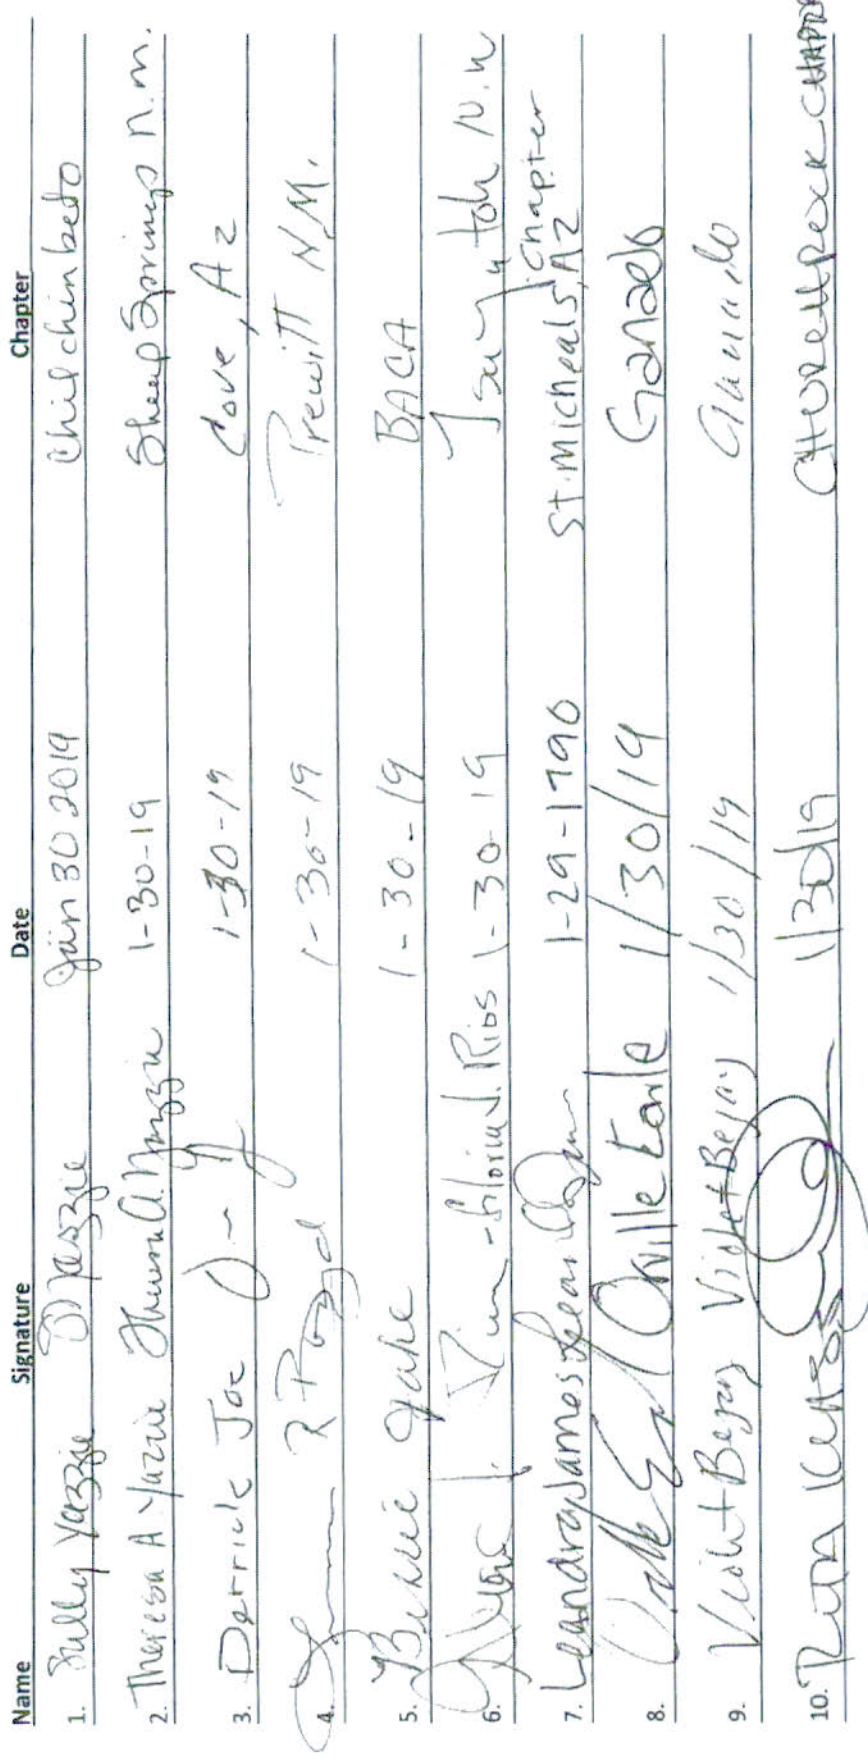 Name Signature Date Chapter
1. Yazzie Jan 30 2019 Chilchinbeto
2. Theresa A. Yazzie Theresa A. Yazzie 1-30-19 Sheep Springs n.m.
3. Derrick Joe 1-30-19 Cove, Az
4. 1-30-19 Prewitt N.M.
5. 1-30-19 BACA
6. Gloria J. Rios 1-30-19
7. Leandra James 1-29-1990 St. Micheals, AZ Chapter
8. Orville 1/30/19 Ganado
9. Violet Begay Violet Begay 1/30/19 Ganado
10. 1/30/19 CHURCHROCK CHAPTER